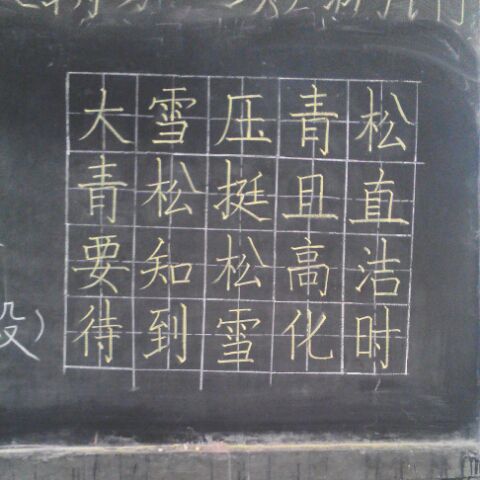 大雪压青松
青松挺且直
要知松高洁
待到雪化时